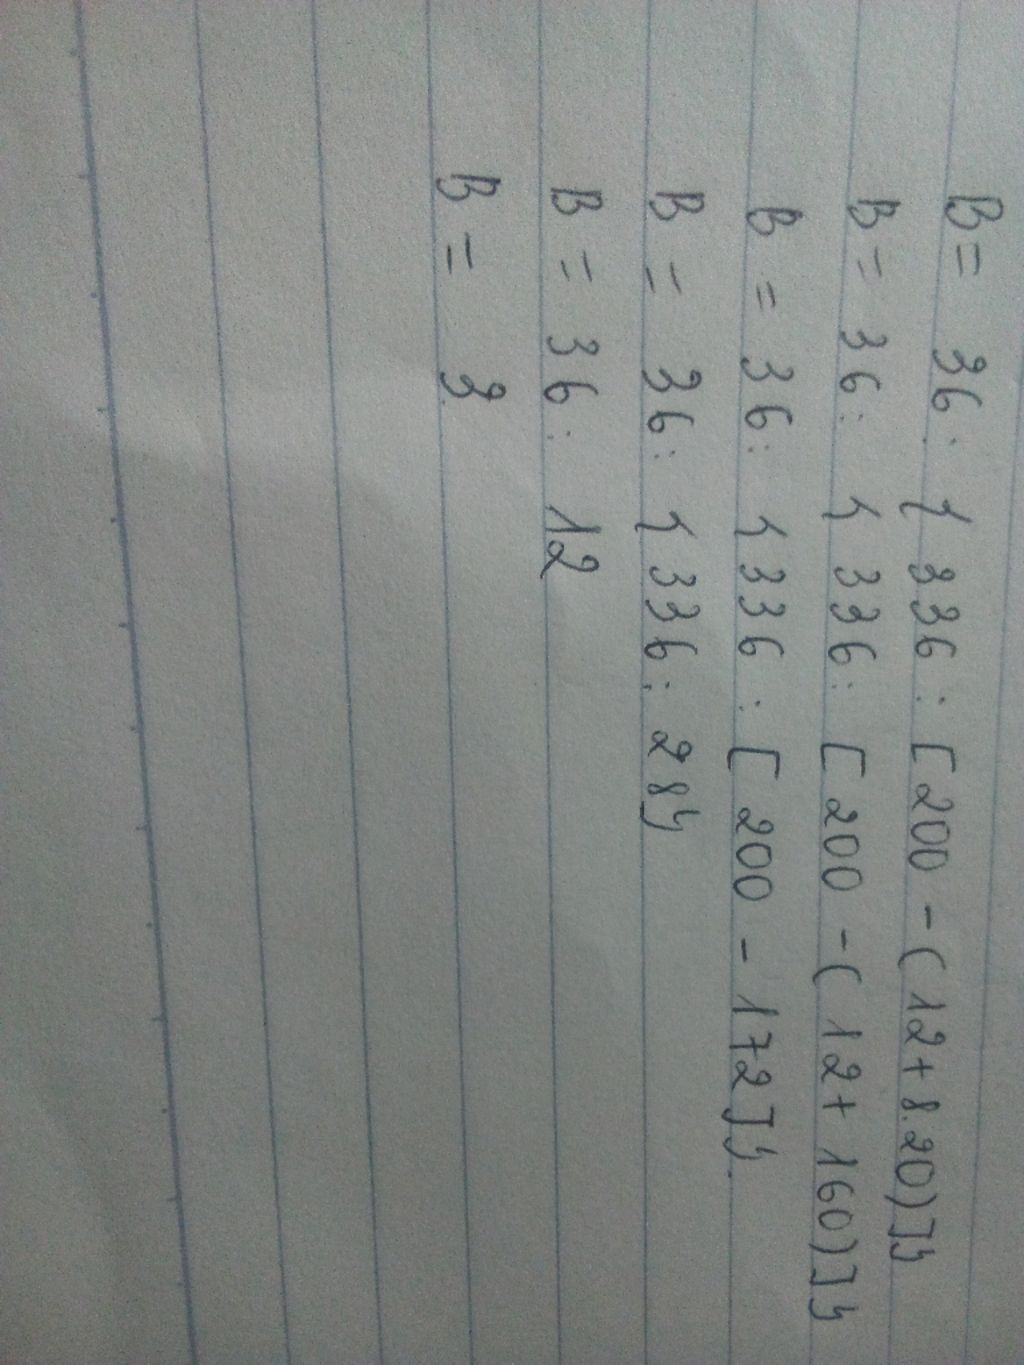 B = 36 : { 336 : [ 200 - ( 12 + 8.20 ) ] }
B = 36 : { 336 : [ 200 - ( 12 + 160 ) ] }
B = 36 : { 336 : [ 200 - 172 ] }.
B = 36 : { 336 : 28 }
B = 36 : 12
B = 3